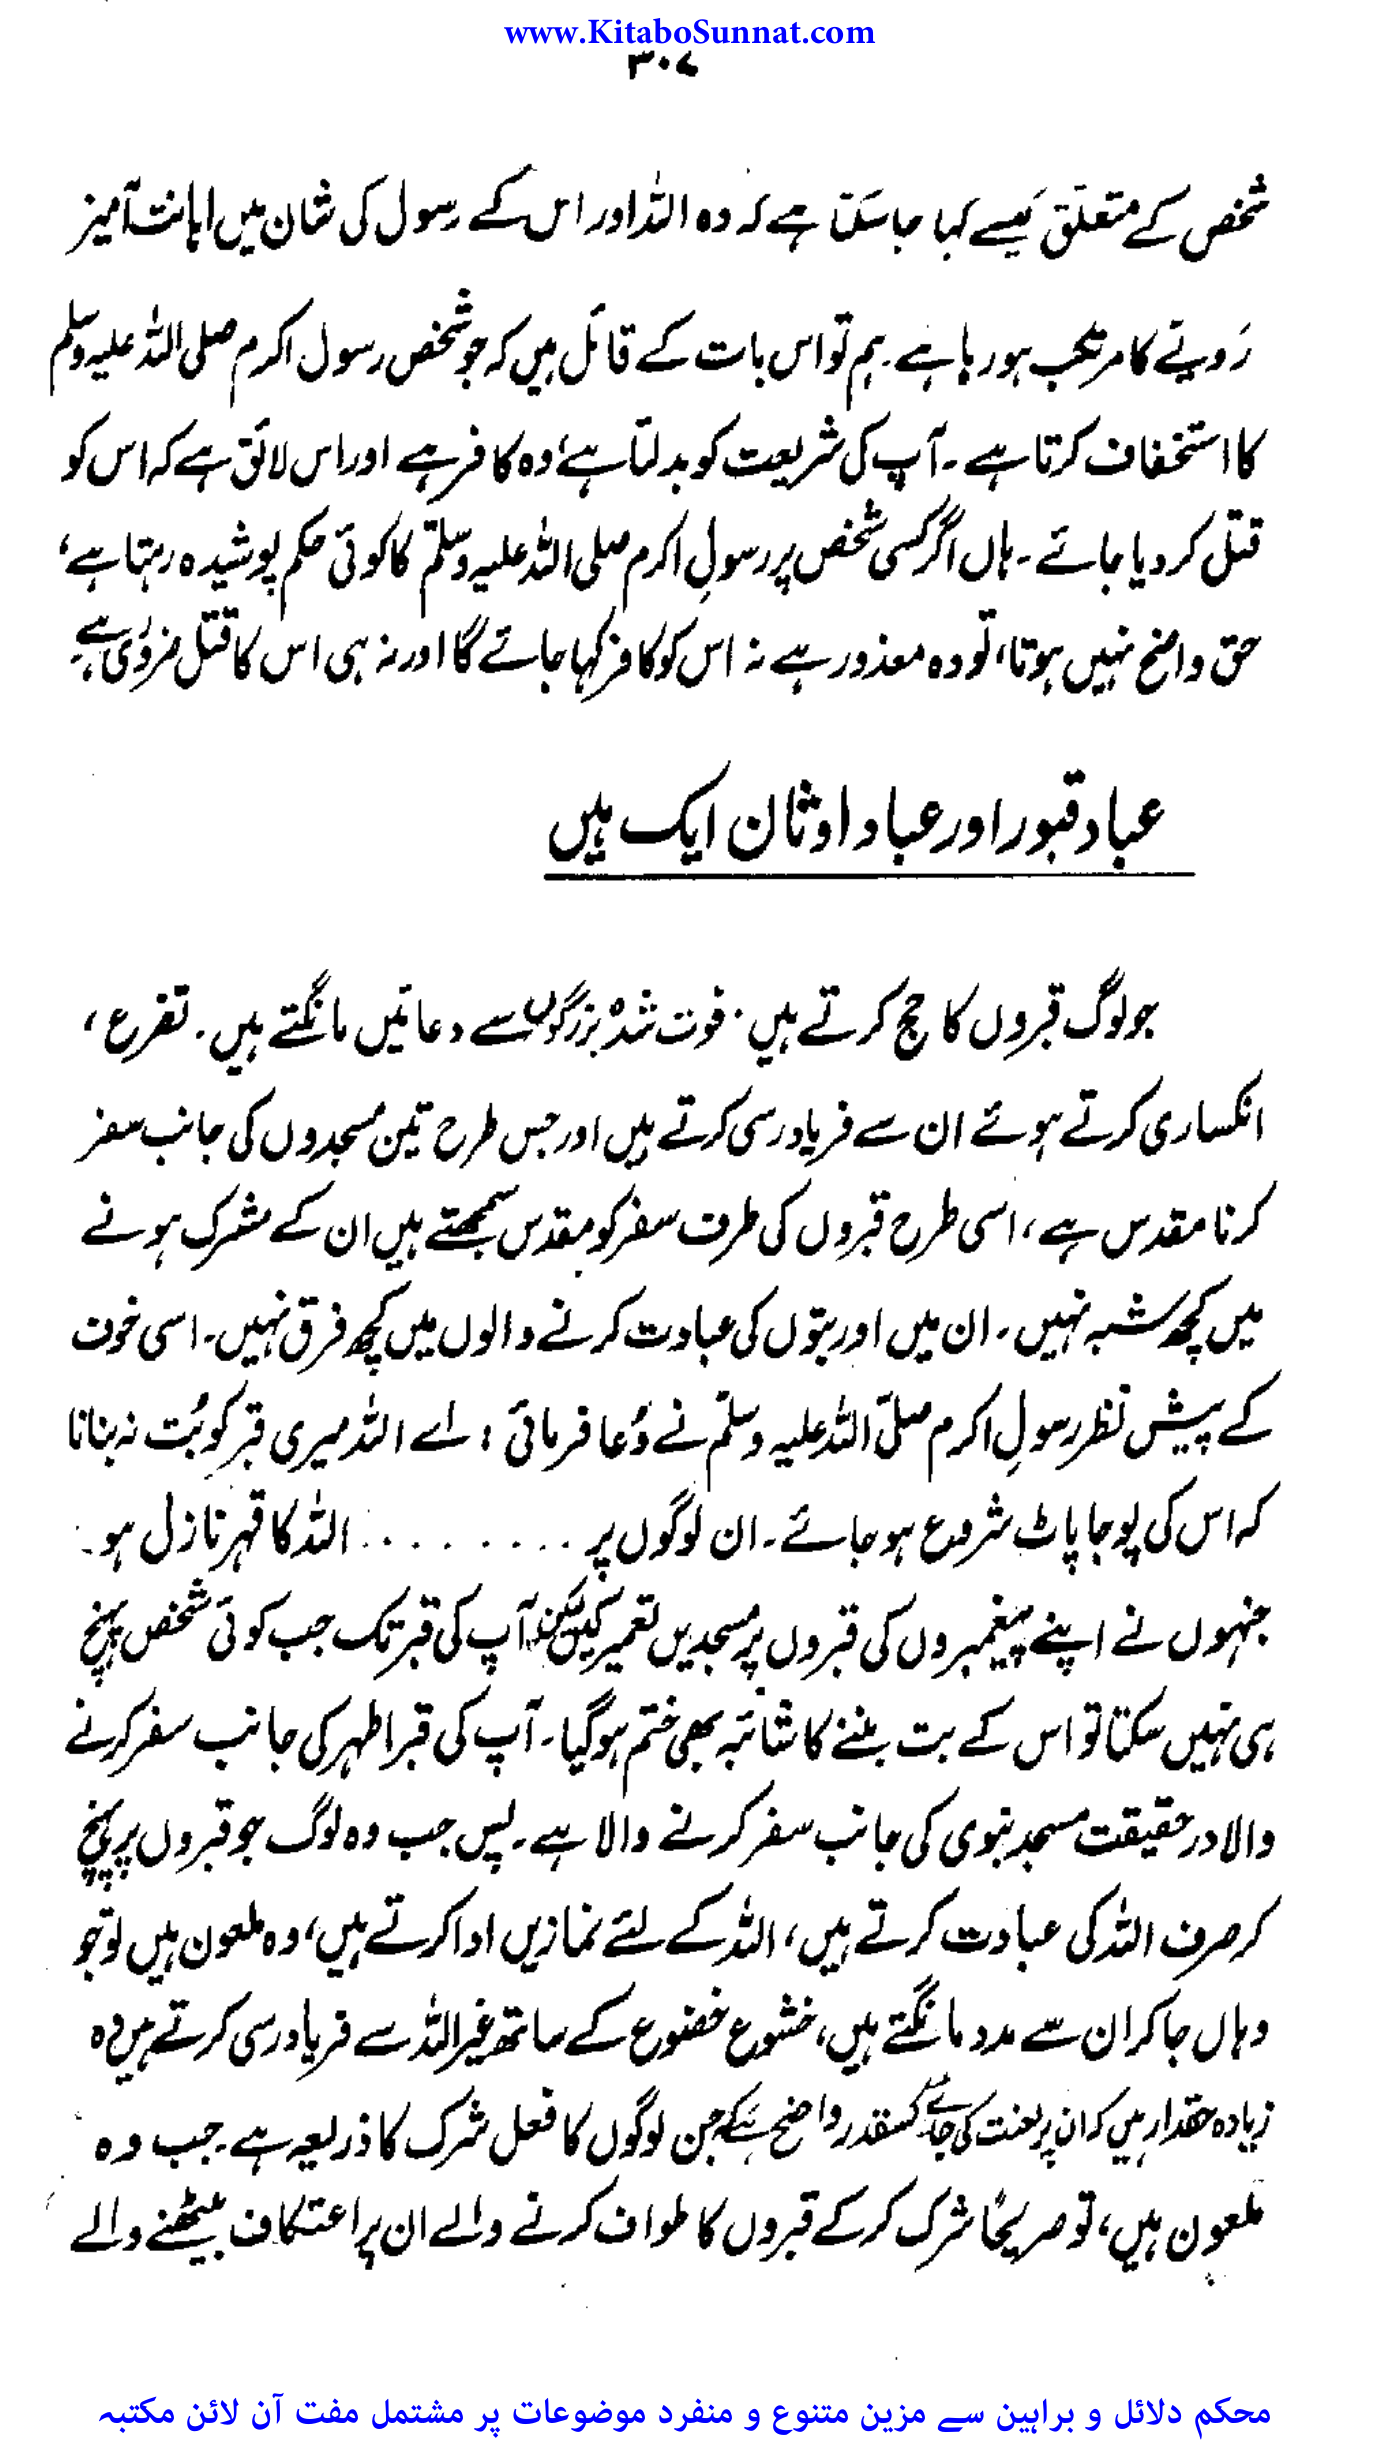 www.KitaboSunnat.com
۳۰۷
شخص کے متعلق کیسے کہا جا سکتا ہے کہ وہ اللہ اور اس کے رسول کی شان میں اہانت آمیز
رَویّے کا مرتکب ہو رہا ہے۔ ہم تو اس بات کے قائل ہیں کہ جو شخص رسول اکرم صلی اللہ علیہ وسلم
کا استخفاف کرتا ہے۔ آپ کی شریعت کو بدلتا ہے، وہ کافر ہے اور اس لائق ہے کہ اس کو
قتل کر دیا جائے۔ ہاں اگر کسی شخص پر رسولِ اکرم صلی اللہ علیہ وسلم کا کوئی حکم پوشیدہ رہتا ہے،
حق واضح نہیں ہوتا، تو وہ معذور ہے نہ اس کو کافر کہا جائے گا اور نہ ہی اس کا قتل ضروری ہے۔
عباد قبور اور عباد اوثان ایک ہیں
جو لوگ قبروں کا حج کرتے ہیں۔ فوت شدہ بزرگوں سے دعائیں مانگتے ہیں۔ تضرع،
انکساری کرتے ہوئے ان سے فریاد رسی کرتے ہیں اور جس طرح تین مسجدوں کی جانب سفر
کرنا مقدس ہے، اسی طرح قبروں کی طرف سفر کو مقدس سمجھتے ہیں ان کے مشرک ہونے
میں کچھ شبہ نہیں۔ ان میں اور بتوں کی عبادت کرنے والوں میں کچھ فرق نہیں۔ اسی خوف
کے پیش نظر رسولِ اکرم صلّی اللہ علیہ وسلّم نے دُعا فرمائی: اے اللہ میری قبر کو بُت نہ بنانا
کہ اس کی پوجا پاٹ شروع ہو جائے۔ ان لوگوں پر ......... اللہ کا قہر نازل ہو۔
جنہوں نے اپنے پیغمبروں کی قبروں پر مسجدیں تعمیر کیں لیکن آپ کی قبر تک جب کوئی شخص پہنچ
ہی نہیں سکتا تو اس کے بت بننے کا شائبہ بھی ختم ہو گیا۔ آپ کی قبر اطہر کی جانب سفر کرنے
والا در حقیقت مسجد نبوی کی جانب سفر کرنے والا ہے۔ پس جب وہ لوگ جو قبروں پر پہنچ
کر صرف اللہ کی عبادت کرتے ہیں، اللہ کے لئے نمازیں ادا کرتے ہیں، وہ ملعون ہیں تو جو
وہاں جا کر ان سے مدد مانگتے ہیں، خشوع خضوع کے ساتھ غیر اللہ سے فریاد رسی کرتے ہیں وہ
زیادہ حقدار ہیں کہ ان پر لعنت کی جائے کسقدر واضح ہے کہ جن لوگوں کا فعل شرک کا ذریعہ ہے۔ جب وہ
ملعون ہیں، تو صریحًا شرک کر کے قبروں کا طواف کرنے والے ان پر اعتکاف بیٹھنے والے
محکم دلائل و براہین سے مزین متنوع و منفرد موضوعات پر مشتمل مفت آن لائن مکتبہ